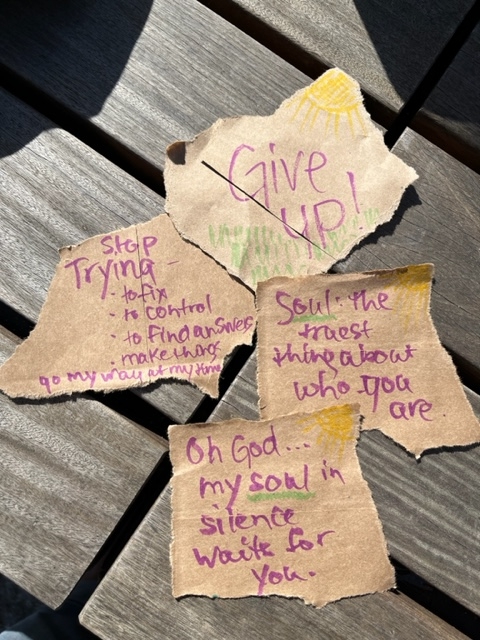 Give
up!
Stop
Trying -
· to fix
· to control
· to find answers
· make things
go my way at my time
Soul: the
truest
thing about
who you
are.
Oh God...
my soul in
silence
waits for
you.